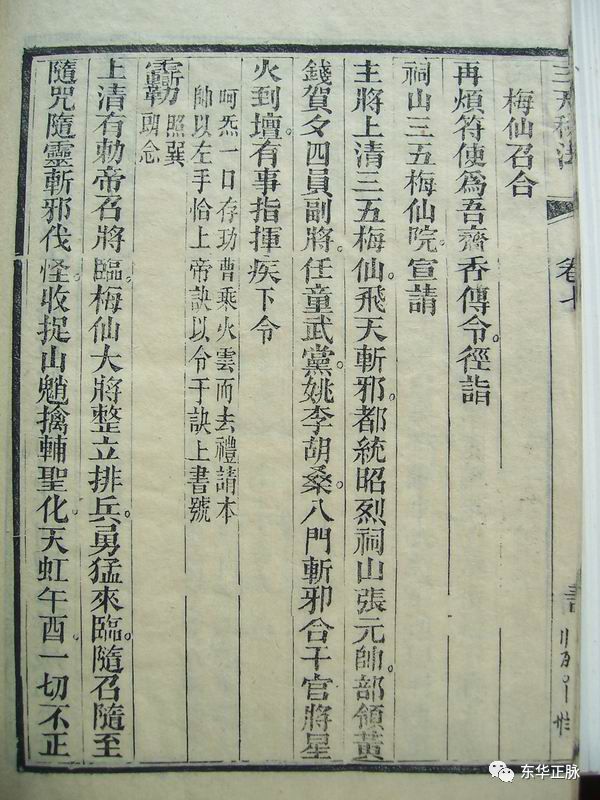 卷七
梅仙召合
再煩符使爲吾齎香傳令。徑詣
祠山三五梅仙院。宣請
主將上清三五梅仙。飛天斬邪。都統昭烈祠山張元帥。部領黃
錢賀夕四員副將。任童武黨姚李胡桑。八門斬邪合干官將星
火到壇。有事指揮疾下令
呵炁一口存功曹乘火雲而去禮請本
帥以左手恰上帝訣以令于訣上書號
照巽
頭念
上清有勅帝召將臨。梅仙大將整立排兵。勇猛來臨。隨召隨至
隨咒隨靈斬邪伐怪。收捉山魈擒輔聖化。天虹午酉。一切不正
东华正脉